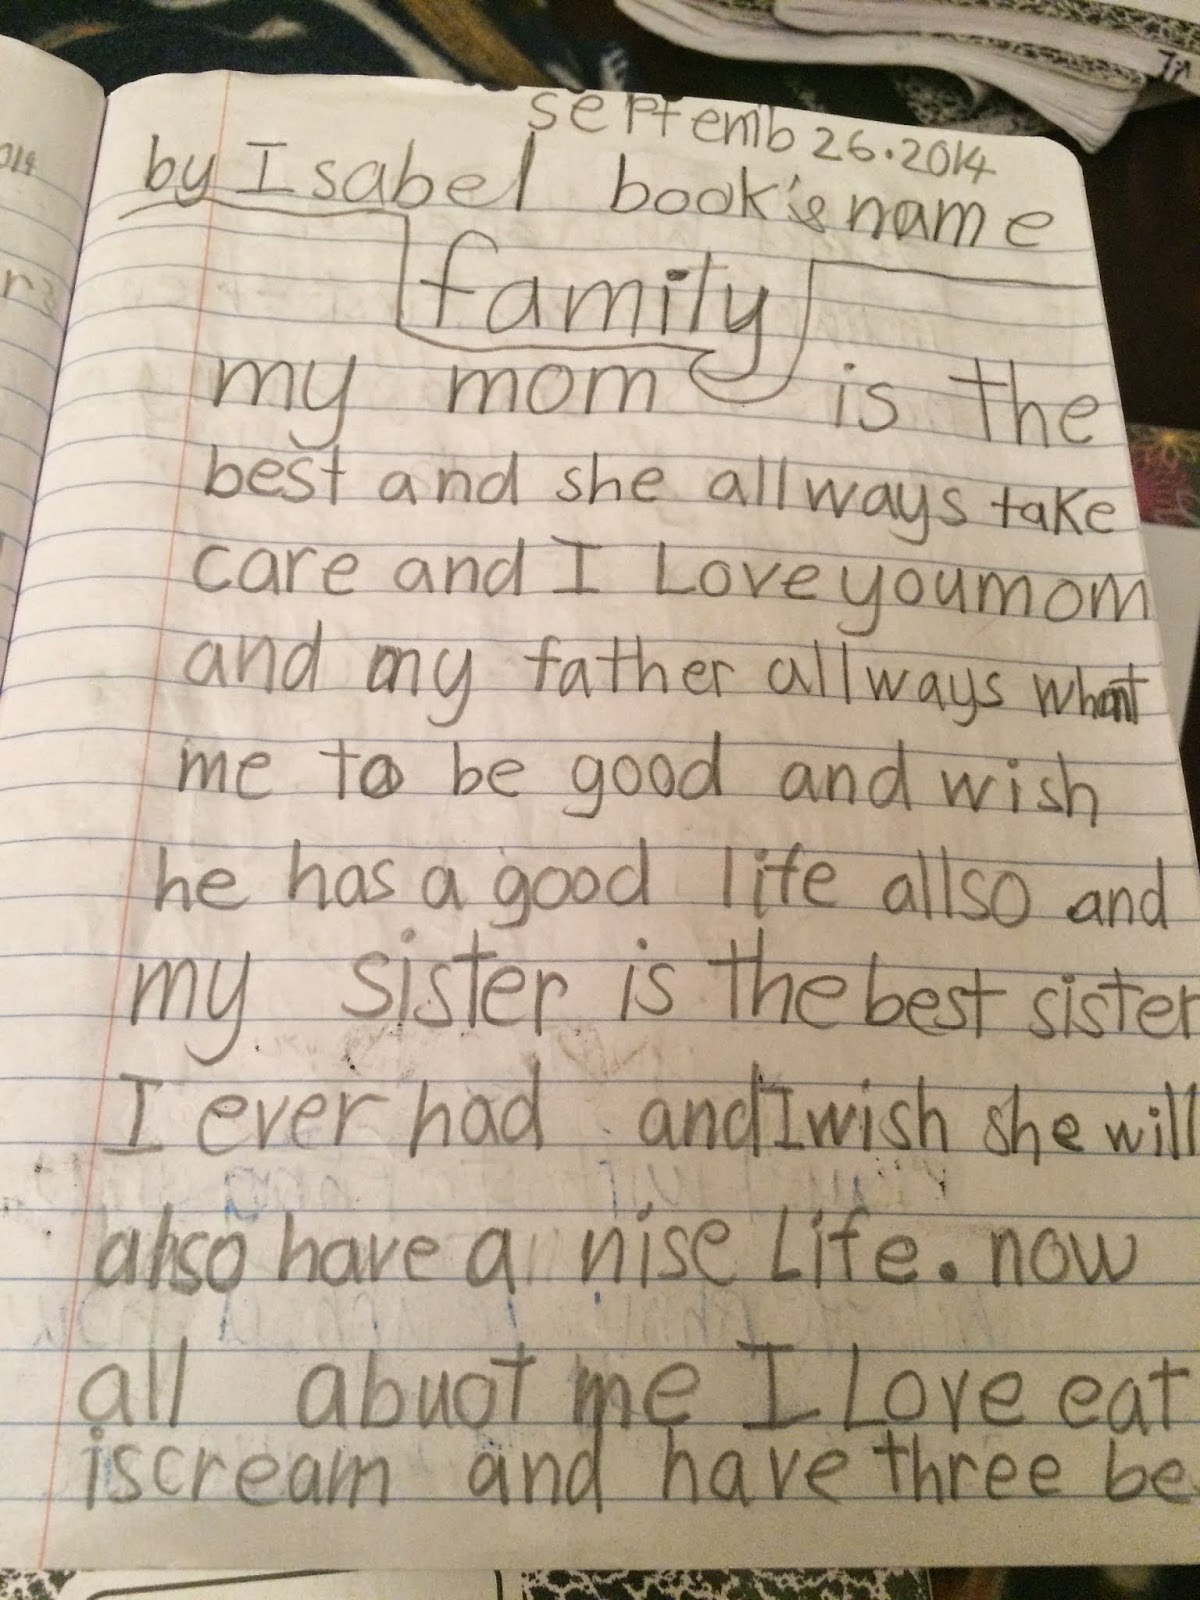 septemb 26.2014
by Isabel book's name
family
my mom is the
best and she allways take
care and I Love you mom
and my father allways whant
me to be good and wish
he has a good life allso and
my sister is the best sister
I ever had and I wish she will
also have a nise Life. now
all abuot me I Love eat
iscream and have three be